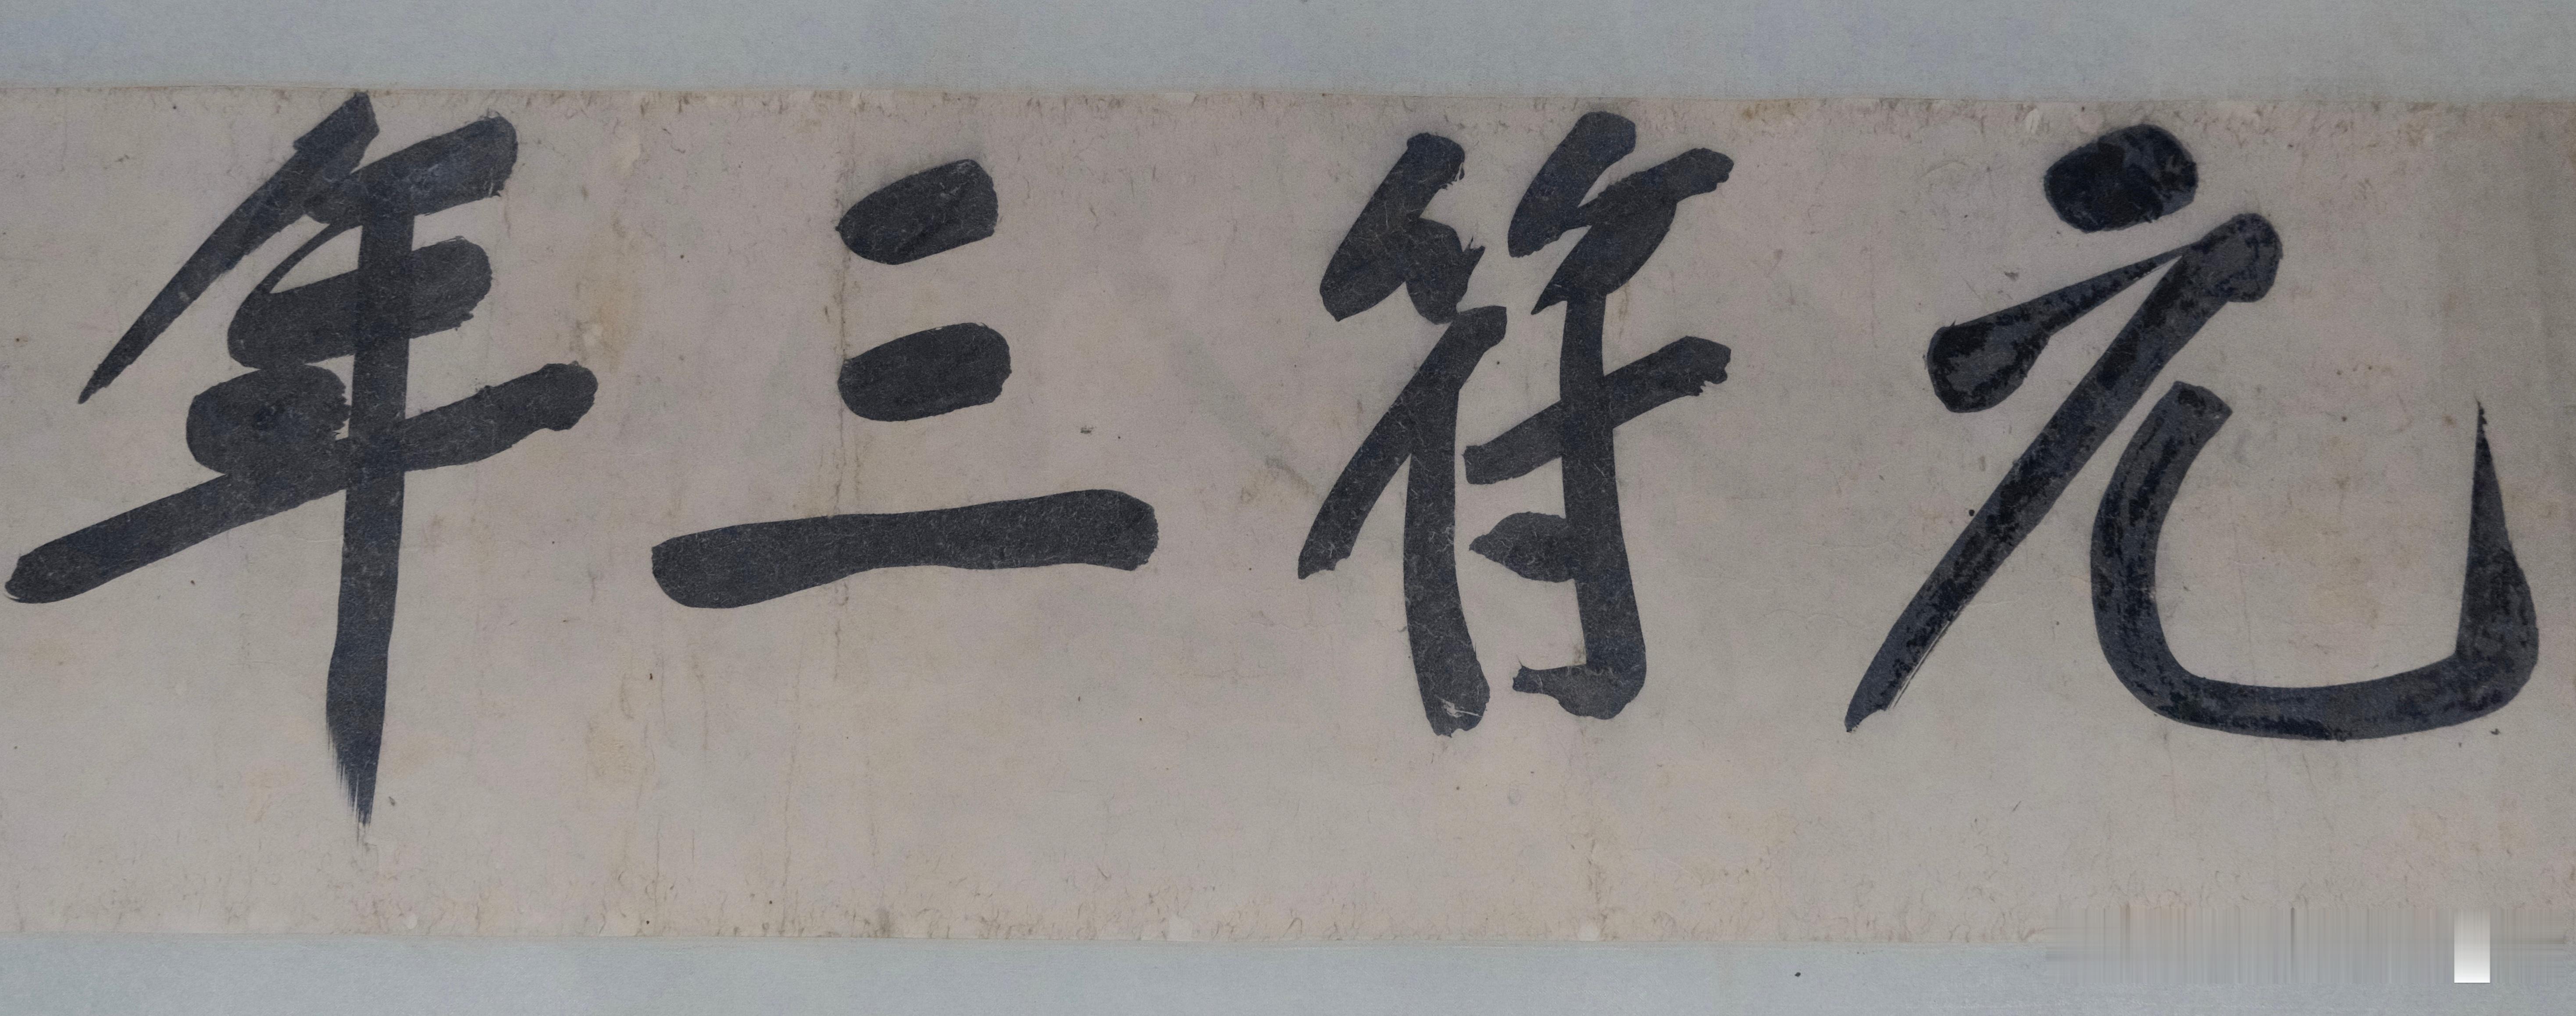 元符三年